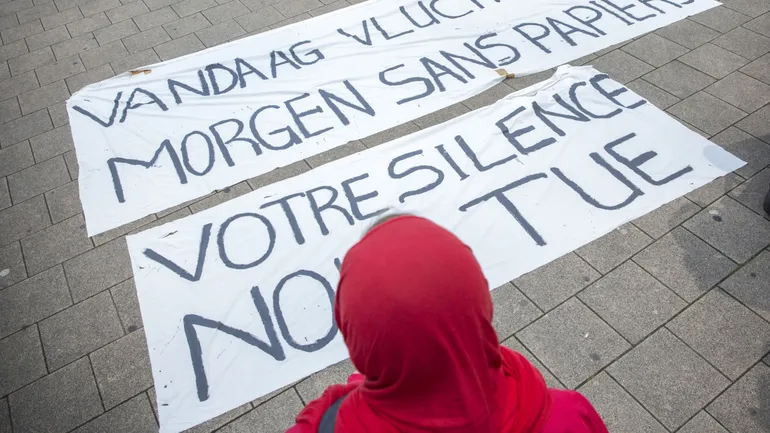 VANDAAG
MORGEN SANS PAPIERS
VOTRE SILENCE
NO TUE